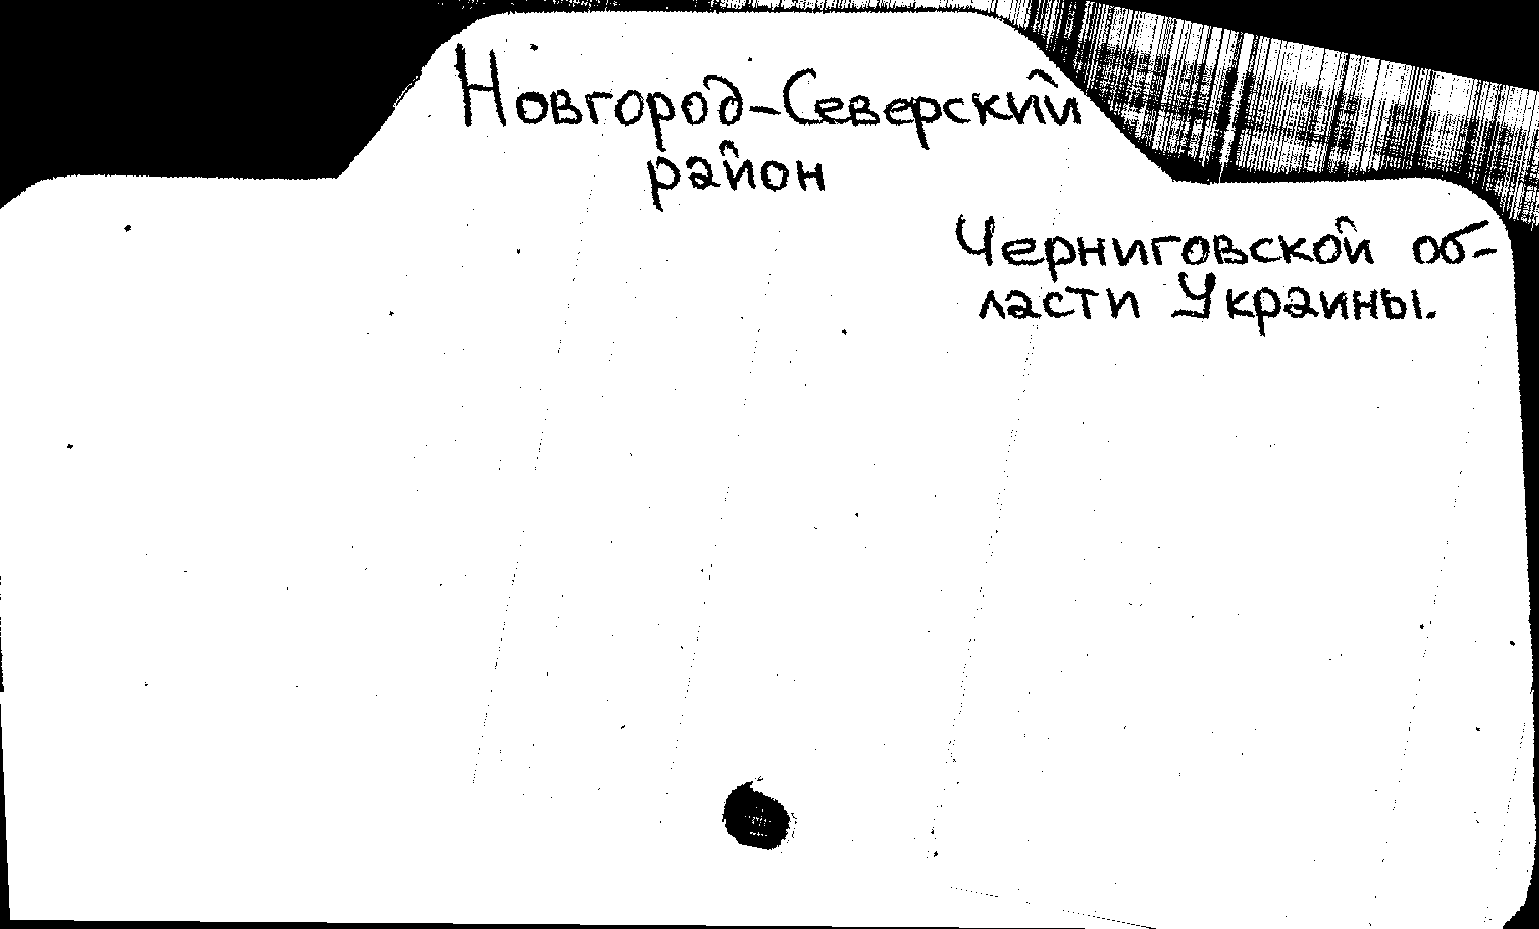 Новгород-Северский
район
Черниговской об-
ласти Украины.